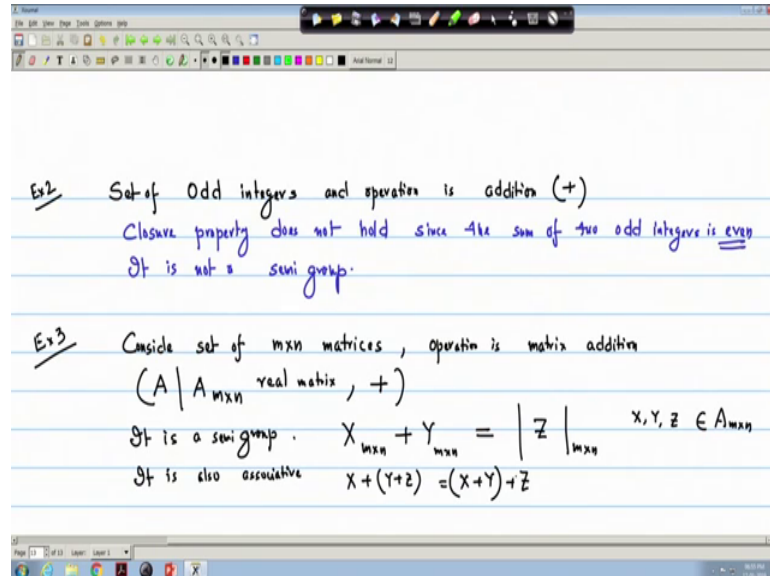 File Edit View Page Tools Options Help
Arial Normal 12
Ex2 Set of Odd integers and operation is addition (+)
Closure property does not hold since the sum of two odd integers is even
It is not a semi group.
Ex3 Conside set of mxn matrices, operation is matrix addition
(A | A mxn real matrix, +)
It is a semi group. X mxn + Y mxn = | Z | mxn X, Y, Z ∈ A mxn
It is also associative X+(Y+Z) =(X+Y)+Z
Page 13 of 13 Layer: Layer 1